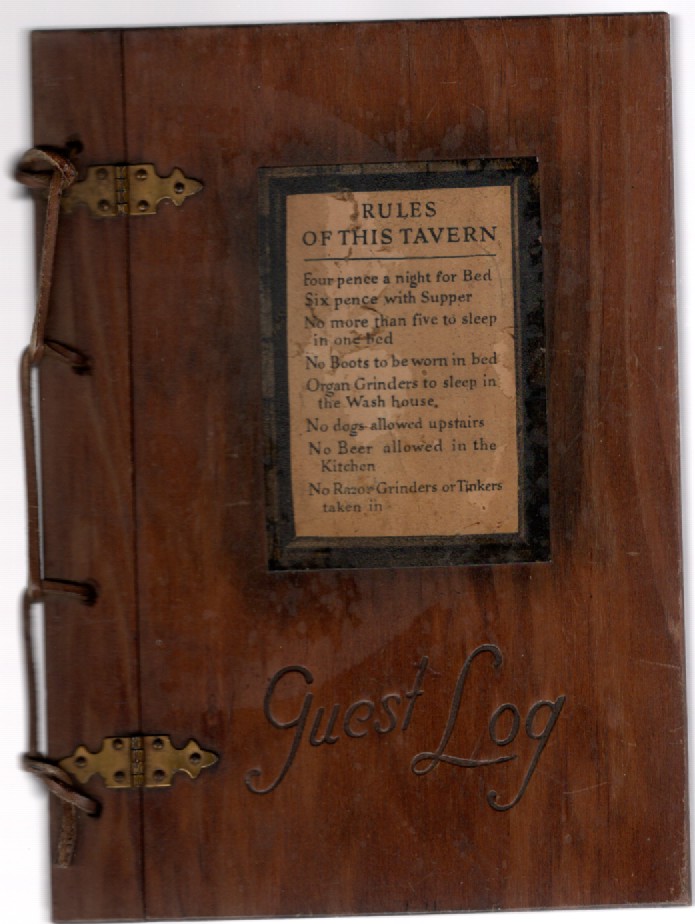 RULES
OF THIS TAVERN
Four pence a night for Bed
Six pence with Supper
No more than five to sleep
in one bed
No Boots to be worn in bed
Organ Grinders to sleep in
the Wash house.
No dogs allowed upstairs
No Beer allowed in the
Kitchen
No Razor Grinders or Tinkers
taken in
Guest Log